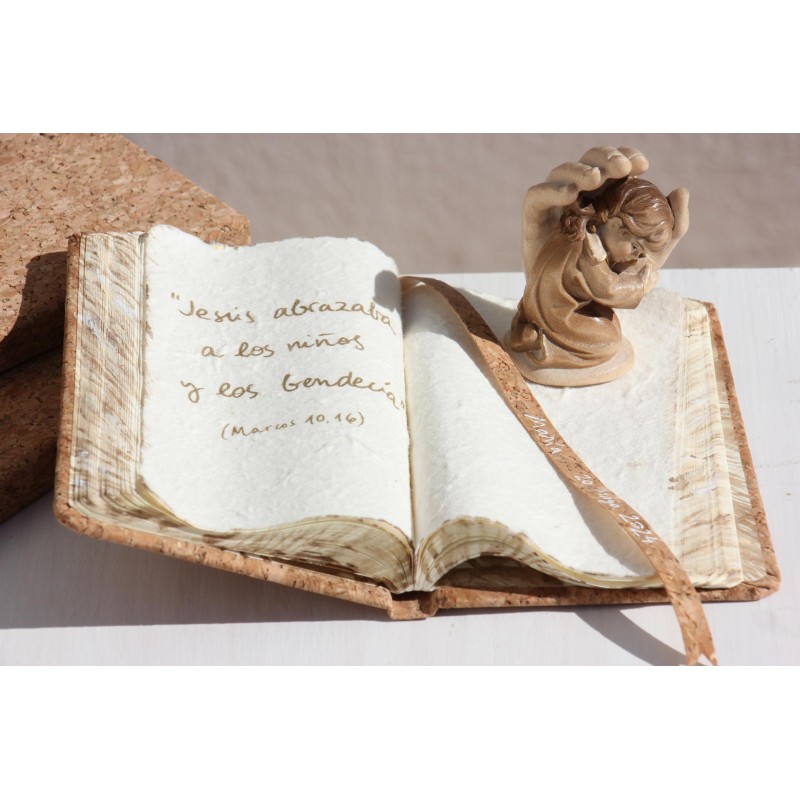 "Jesús abrazaba
a los niños
y los bendecía"
(Marcos 10,16)
María 20 2024